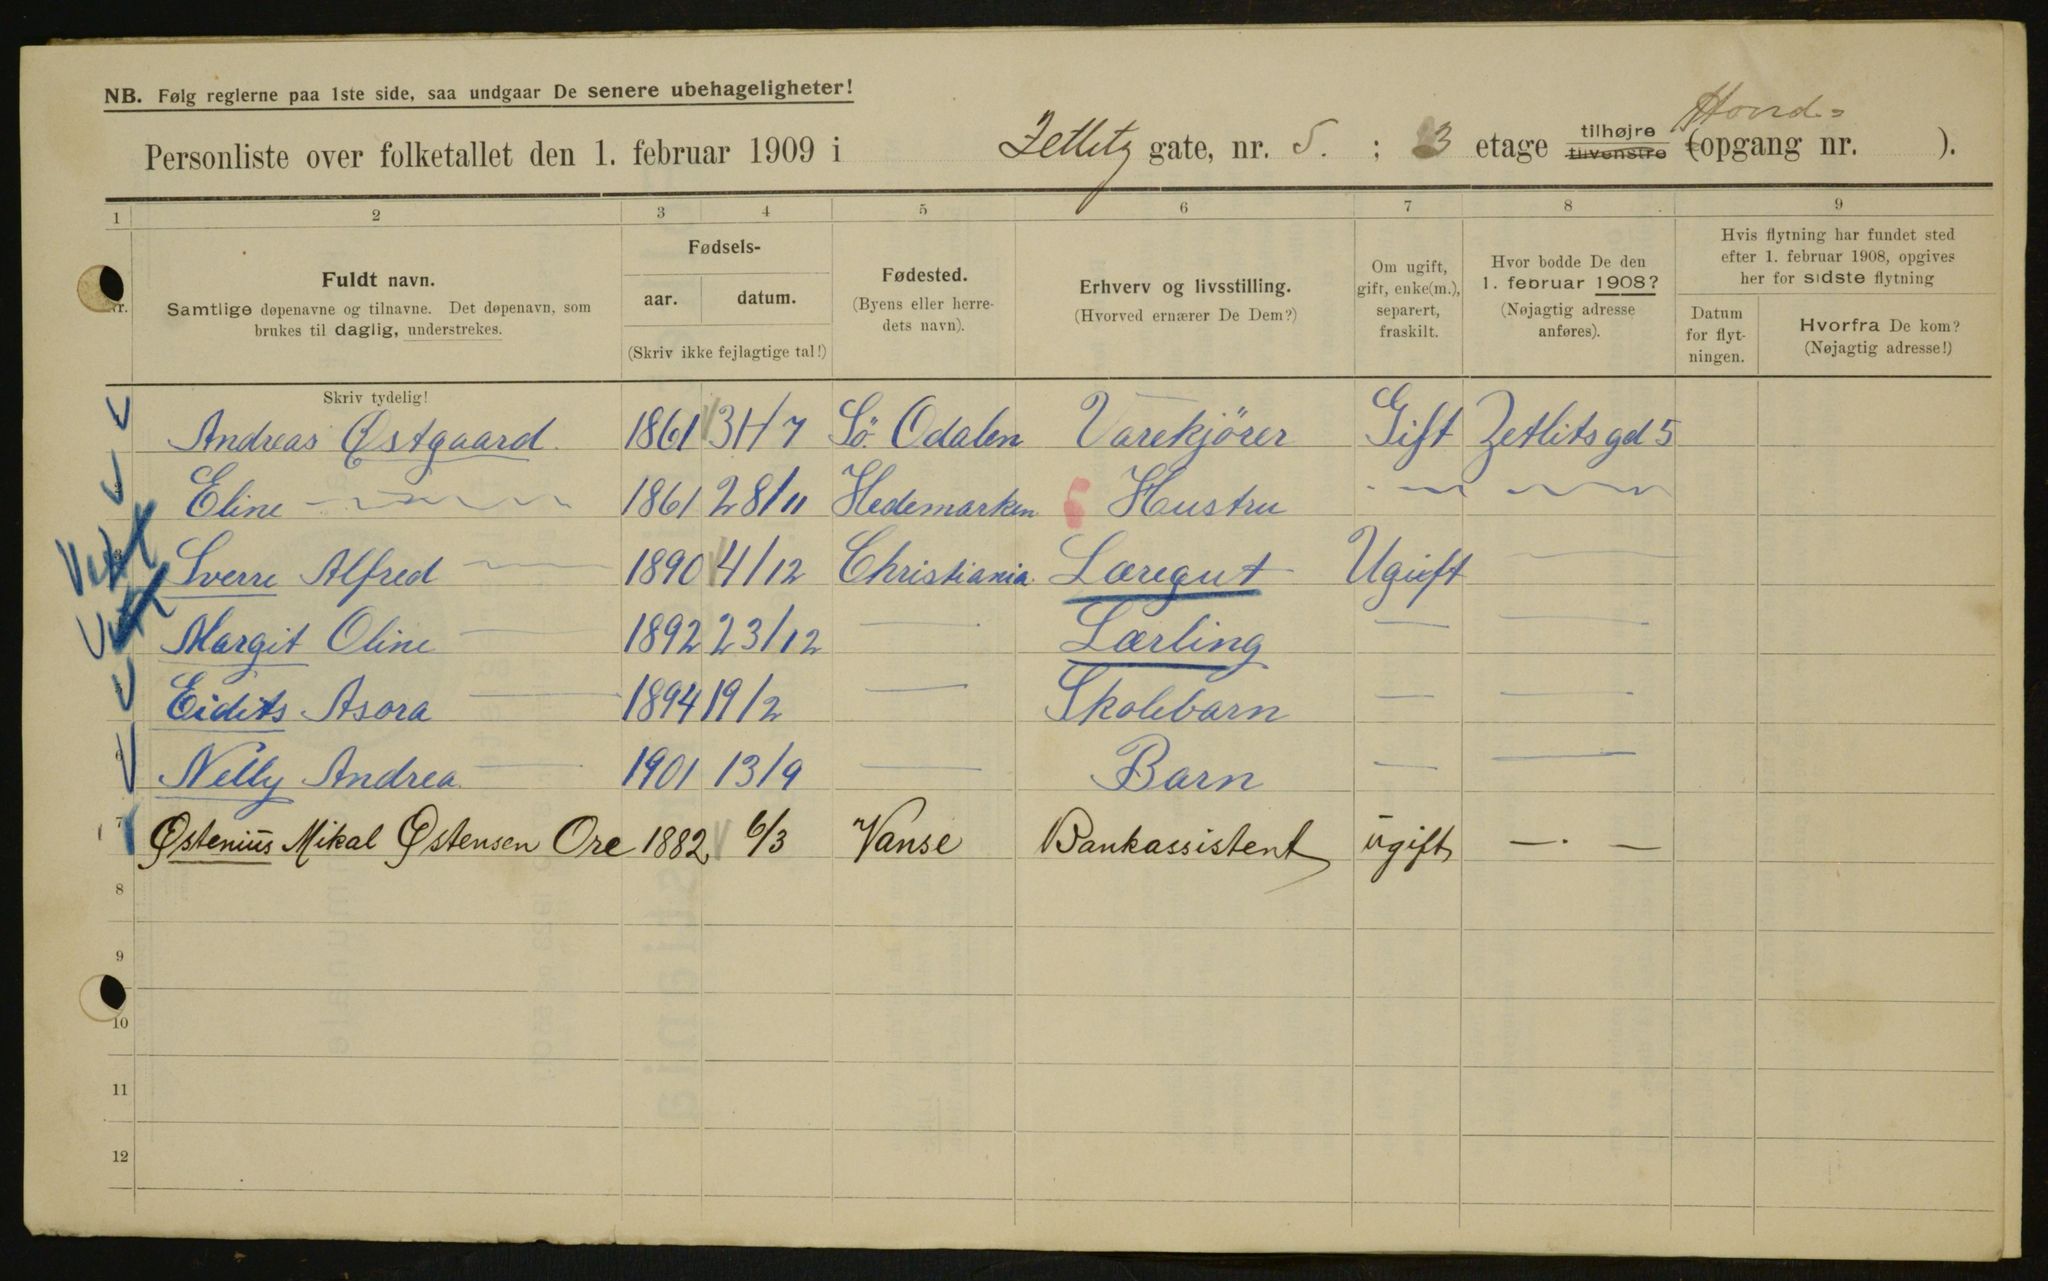 NB. Følg reglerne paa 1ste side, saa undgaar De senere ubehageligheter!
Hovd=
Personliste over folketallet den 1. februar 1909 i Zetlitz gate, nr. 5. ; 3 etage tilhøjre tilvenstre (opgang nr. ).
1 2 3 4 5 6 7 8 9
Nr.
Fuldt navn.
Samtlige døpenavne og tilnavne. Det døpenavn, som
brukes til daglig, understrekes.
Fødsels-
aar. datum.
(Skriv ikke fejlagtige tal!)
Fødested.
(Byens eller herre-
dets navn).
Erhverv og livsstilling.
(Hvorved ernærer De Dem?)
Om ugift,
gift, enke(m.),
separert,
fraskilt.
Hvor bodde De den
1. februar 1908?
(Nøjagtig adresse
anføres).
Hvis flytning har fundet sted
efter 1. februar 1908, opgives
her for sidste flytning
Datum
for flyt-
ningen.
Hvorfra De kom?
(Nøjagtig adresse!)
Skriv tydelig!
Andreas Østgaard 1861 31/7 Sö. Odalen Varekjörer Gift Zetlitsgd 5
Eline — 1861 28/11 Hedemarken Hustru — —
Sverre Alfred — 1890 4/12 Christiania Læregut Ugift —
Margit Oline — 1892 23/12 — Lærling — —
Eidits Asora — 1894 19/2 — Skolebarn — —
6 Nelly Andrea — 1901 13/9 — Barn — —
7 Østenius Mikal Østensen Ore 1882 6/3 Vanse Bankassistent ugift — . —
8
9
10
11
12